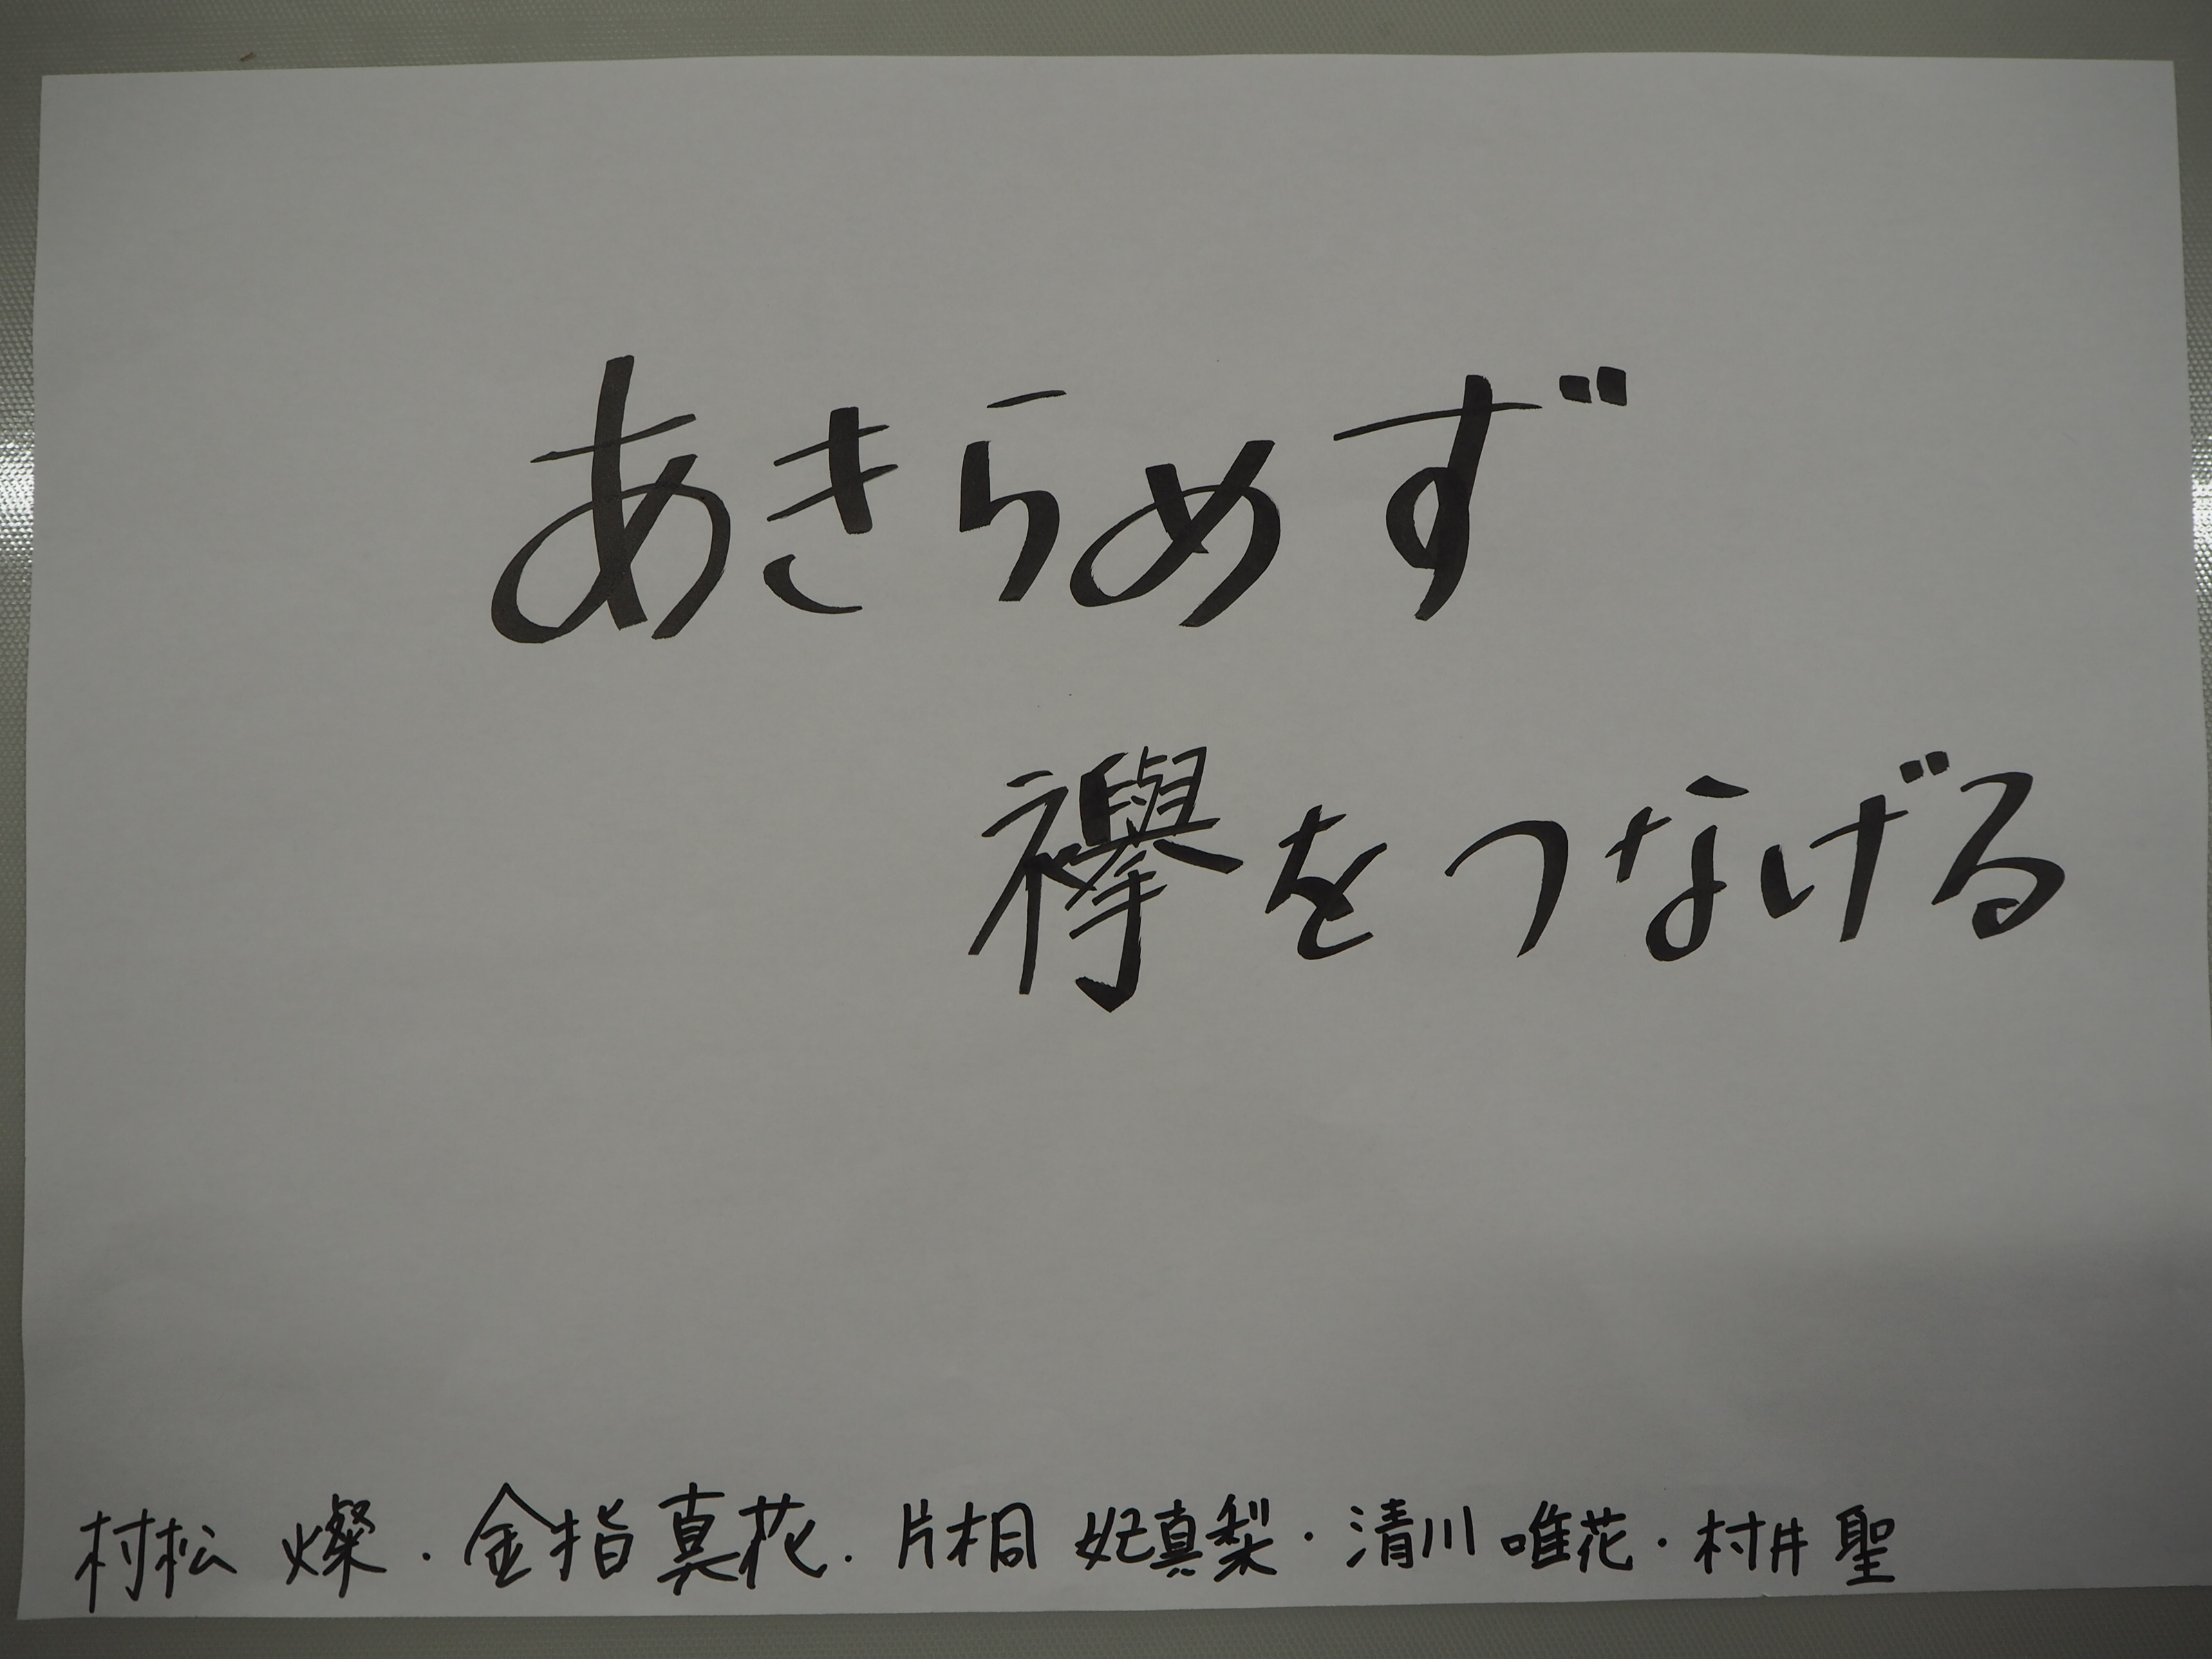 あきらめず
襷をつなげる
村松 燦・金指真花・片桐 妃真梨・清川 唯花・村井 聖